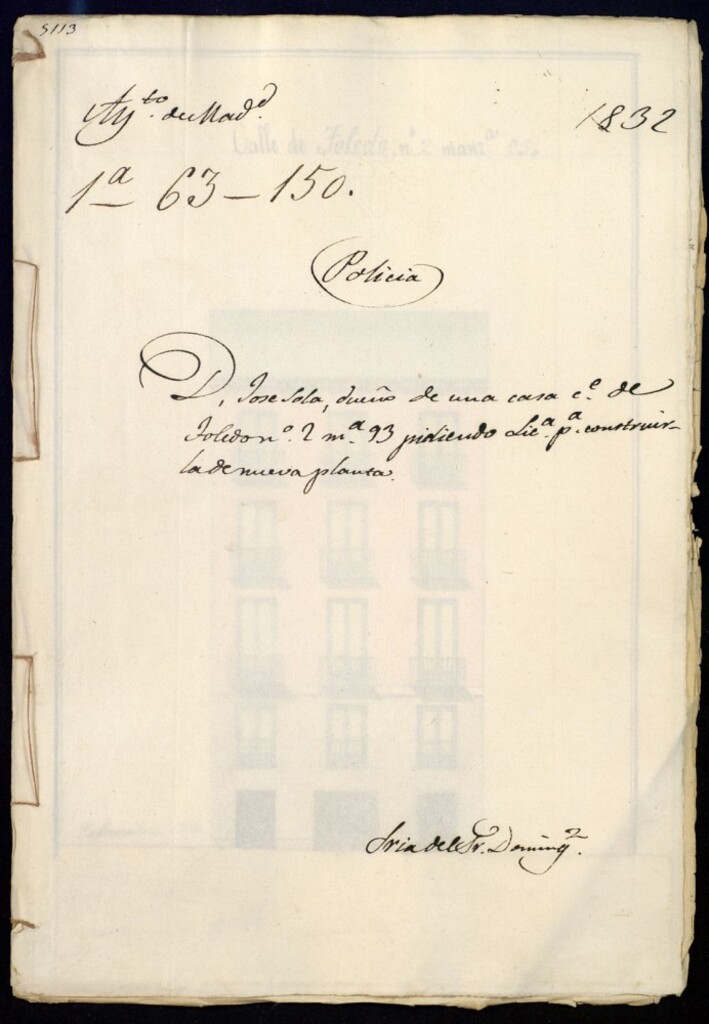 5113
Ay.to de Mad.d
1832
1.a 63-150.
Policia
D. Jose Sola, dueño de una casa c.e de
Toledo n.o 2 m.a 93 pidiendo Lic.a p.a construir-
la de nueva planta.
Calle de Toledo, n.o 2 manz.a
Sria del Sr. Doming.z